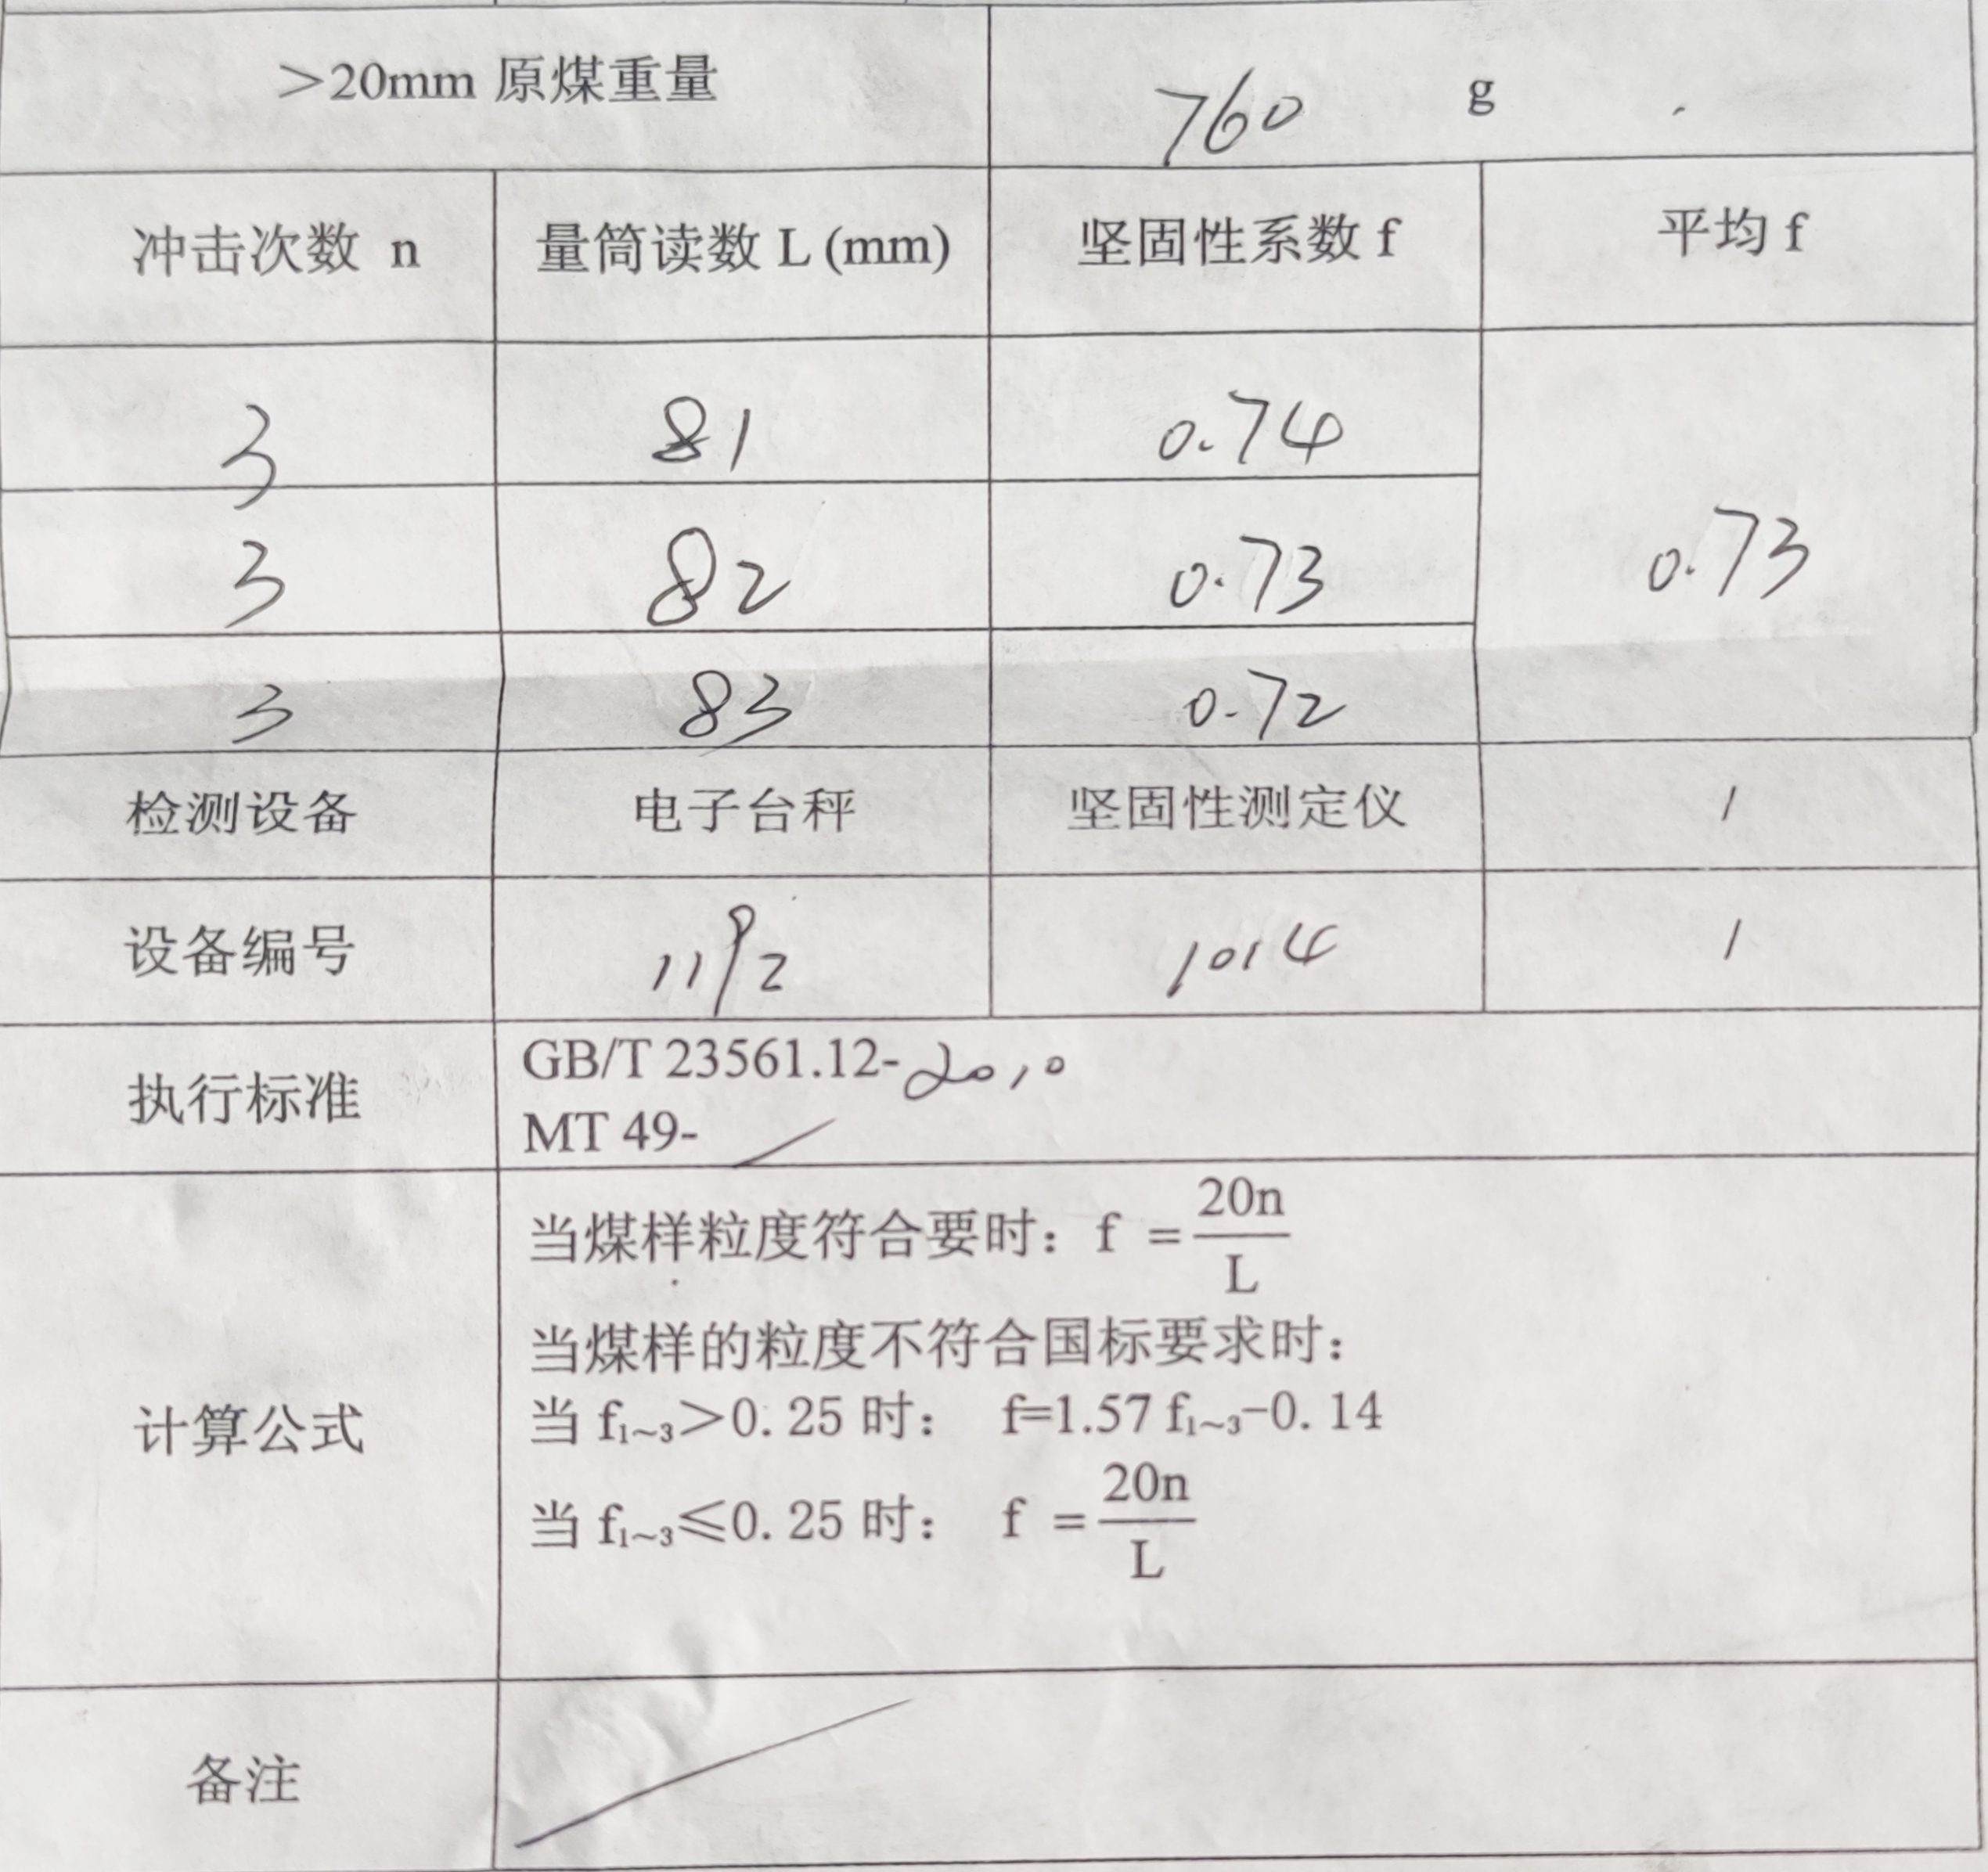 >20mm 原煤重量 760 g
冲击次数 n 量筒读数 L (mm) 坚固性系数 f 平均 f
3 81 0.74
3 82 0.73 0.73
3 83 0.72
检测设备 电子台秤 坚固性测定仪 /
设备编号 1192 1014 /
执行标准
GB/T 23561.12-2010
MT 49- /
计算公式
当煤样粒度符合要时：f = 20n/L
当煤样的粒度不符合国标要求时：
当 f₁~₃>0.25 时： f=1.57 f₁~₃-0.14
当 f₁~₃≤0.25 时： f = 20n/L
备注 /